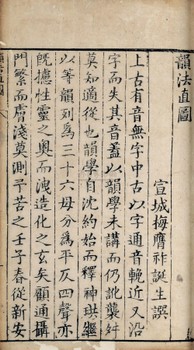 韻法直圖
宣城梅膺祚誕生譔
上古有音無字中古以字通音輓近又沿
字而失其音盖以韻學未講而仍訛襲舛
莫知適從也韻學自沈約始而釋神珙繼
以等韻列為三十六母分為平仄四聲亦
既攄性靈之奧而洩造化之玄矣顧通攝
門繁而膚淺莫測予苦之壬子春從新安